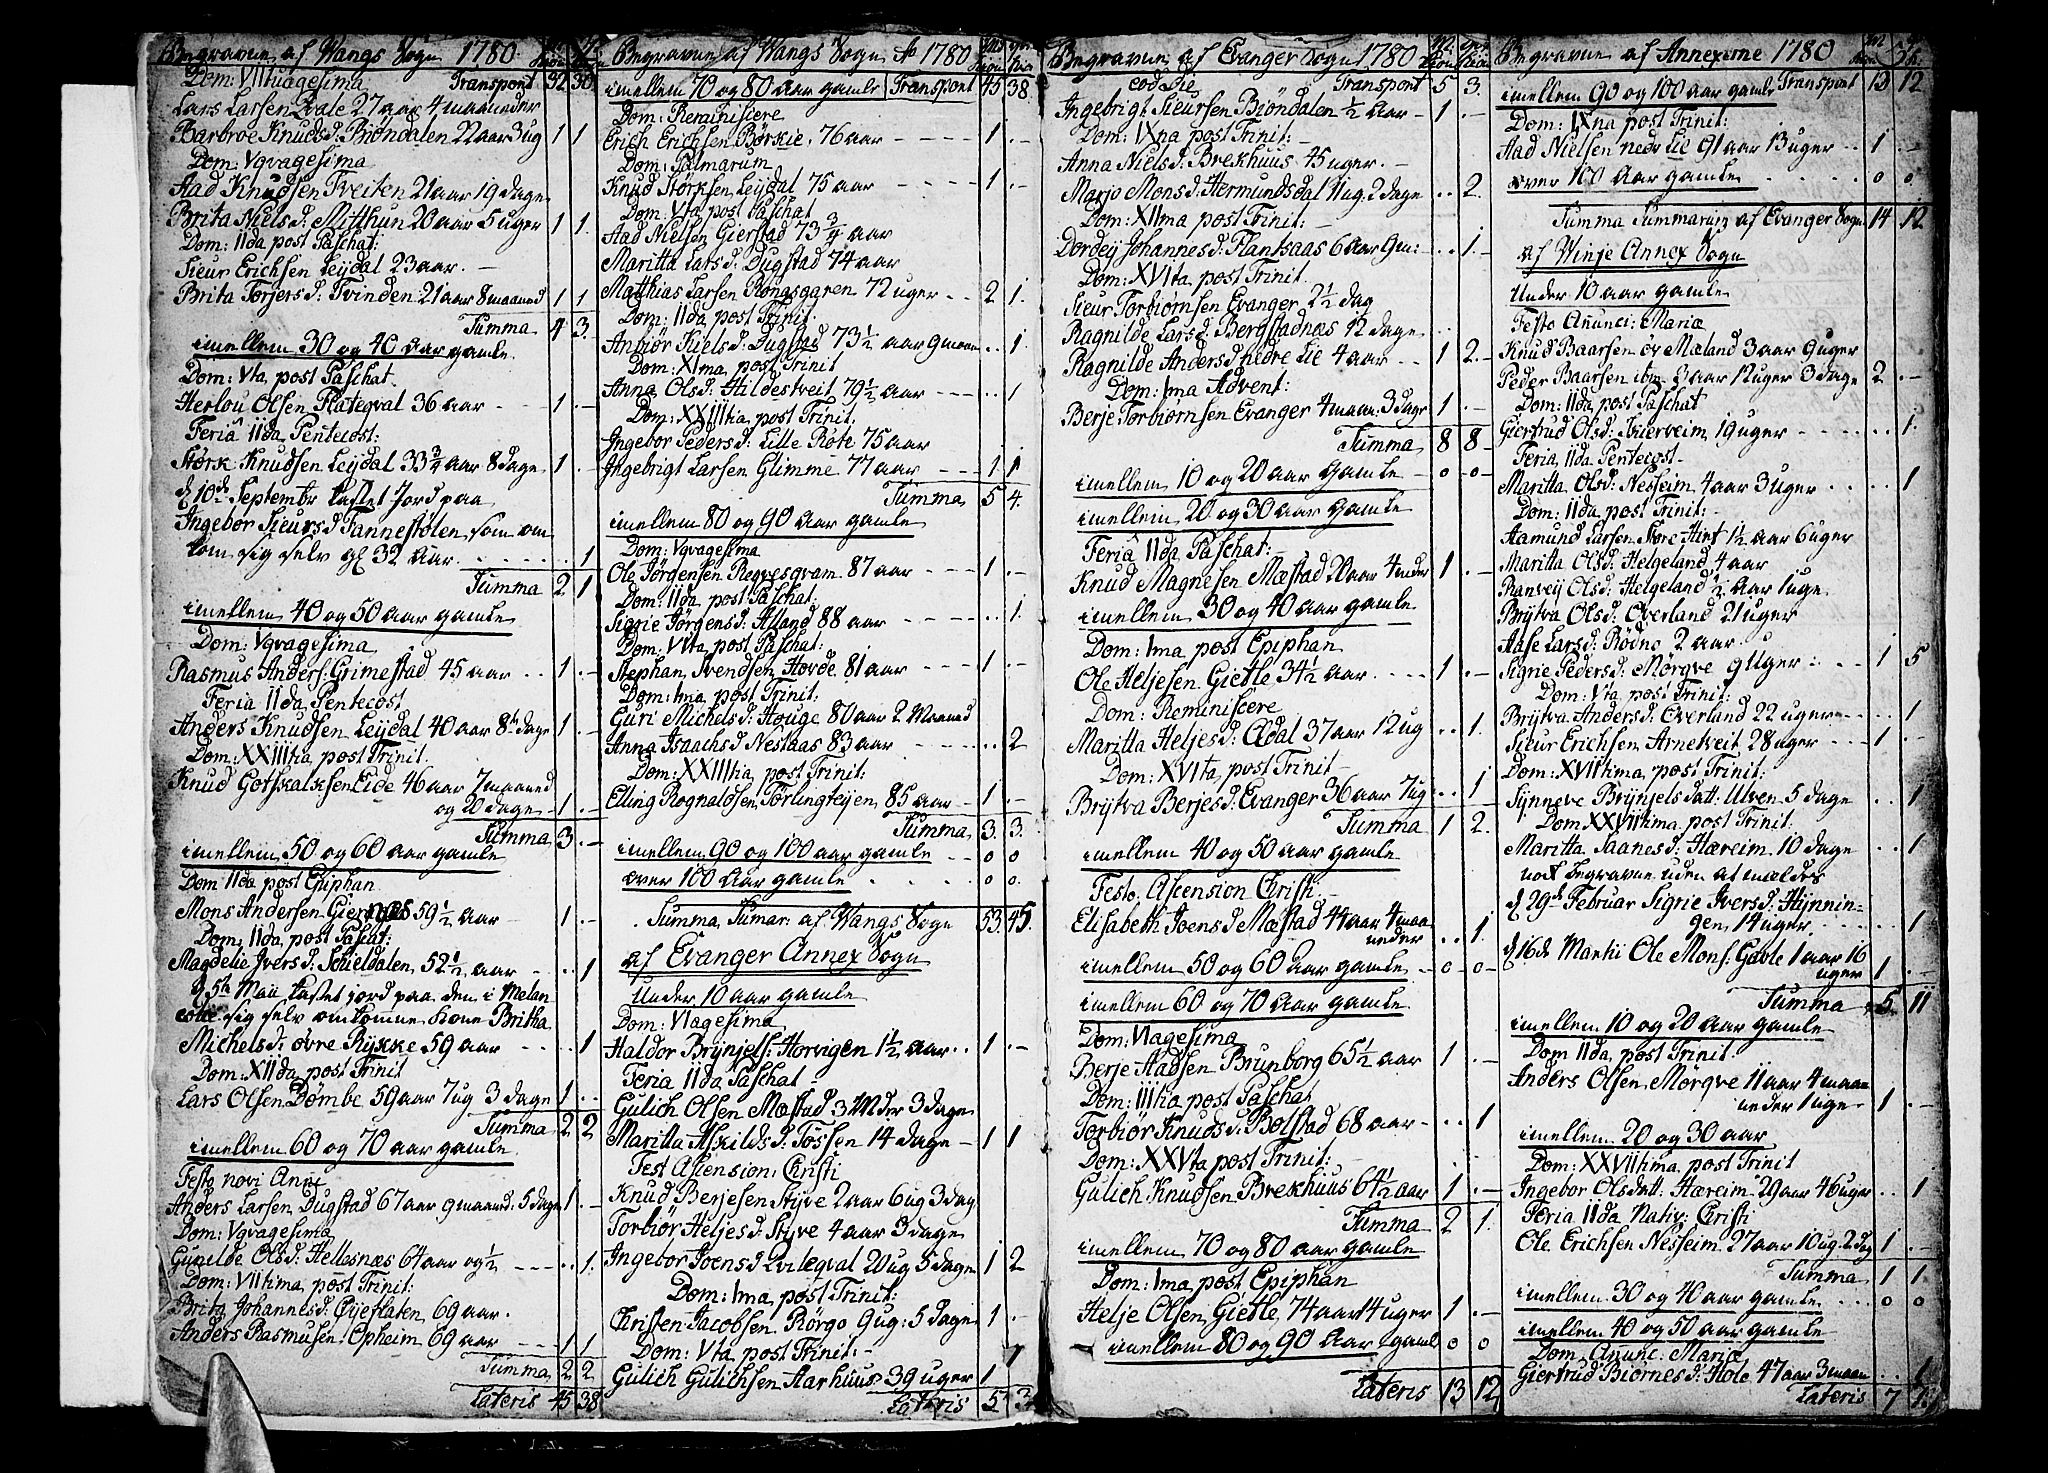 Begravne af Vangs Sogn 1780.
Dom: VIItuagesima Transport 32 30.
Lars Larsen Qvale 27 aar 4 maaneder
Barbroe Knudsd. Biöndalen 22 aar 3 ug 1 1
Dom: Vqvagesima
Aad Knudsen Tveiten 21 aar 19 dage
Brita Nielsd. Mitthun 20 aar 5 uger 1 1.
Dom: IIda post Paschat:
Sieur Erichsen Leijdal 23 aar. -
Brita Torjersd: Tvinden 21 aar 8 maaned 1 1
Summa 4 3.
imellem 30 og 40 aar gamle.
Dom: Vta post Paschat.
Herlou Olsen Flateqval 36 aar - - 1 . -
Feria IIda Pentecost:
Störk Knudsen Leijdal 33 3/4 aar 8 dage 1 . -
d 10de Septembr kastet Jord paa
Ingebor Sieursd Fannestolen som om
kom sig selv gl 32 aar. . . 1
Summa 2 1
imellem 40 og 50 aar gamle
Dom: Vqvagesima
Rasmus Anders: Grimestad 45 aar . . 1 . -
Feria IIda Pentecost
Anders Knudsen Leijdal 40 aar 8te dage 1 . -
Dom: XXIIItia post Trinit.
Knud Gotskalksen Eide 46 aar 7 maaned
og 20 dage - 1 . -
Summa 3 . -
imellem 50 og 60 aar gamle
Dom: IIda post Epiphan
Mons Andersen Giernes 59 1/2 aar - 1 . -
Dom: IIda post Paschat:
Magdelie Iversd: Schieldalen 52 1/2 aar - . . 1
d 5te Maii kastet jord paa den i Melan
colie sig selv omkomne Kone Britha
Michelsd: övre Rÿkke 59 aar - - . . 1
Dom: XIIda post Trinit
Lars Olsen Dömbe 59 aar 7 ug 3 dage 1 . -
Summa 2 2
imellem 60 og 70 aar gamle
Festo novi Anni
Anders Larsen Dugstad 67 aar 9 maaned: 5 dage 1 . -
Dom: Vqvagesima
Gunilde Olsd: Hellesnæs 64 aar og 1/2 - - . . 1.
Dom: VIItima post Trinit:
Brita Johannesd: Gjeflaten 69 aar.
Anders Rasmusen Opheim 69 aar - - 1 1
Summa 2 2
Lateris 45 38
Begravne af Vangs Sogn Ao 1780
imellem 70 og 80 aar gamle Transport 45 38.
Dom: Reminiscere
Erich Erichsen Börkie 76 aar - - - 1 . -
Dom: Palmarum
Knud Störksen Leijdal 75 aar - - - 1 . -
Dom: Vta post Paschat
Aad Nielsen Gierstad 73 3/4 aar
Maritta Larsd: Dugstad 74 aar
Matthias Larsen Rongsgaren 72 uger - - 2 1.
Dom: IIda post Trinit:
Anbiör Nielsd: Dugstad 73 1/2 aar 9 maan . . 1.
Dom: XIma post Trinit
Anna Olsd: Hildestveit 79 1/2 aar - - - . . 1
Dom: XXIIItia post Trinit.
Ingebor Pedersd: Lille Röte 75 aar
Ingebrigt Larsen Glimme 77 aar - - - 1 1
Summa 5 4.
imellem 80 og 90 aar gamle
Dom: Vqvagesima
Ole Jörgensen Regvesqvam 87 aar - - - 1 . -
Dom: IIda post Paschat:
Sigrie Jörgensd: Afland 88 aar - - - . . 1.
Dom: VIta post Paschat:
Stephan Svendsen Hovde 81 aar - - - 1 . -
Dom: Ima post Trinit:
Guri Michelsd: Houge 80 aar 2 Maaned
Anna Isaachsd Nestaas 83 aar - - - . . 2
Dom: XXIIItia post Trinit:
Elling Rognaldsen Törlingteijen 85 aar - 1 . -
Summa 3. 3.
imellem 90 og 100 aar gamle - - 0 0
over 100 Aar gamle . . . 0 0.
Summa Sumar: af Vangs Sogn 53. 45.
af Evanger Annex Sogn
Under 10 aar gamle
Dom: VIagesima
Haldor Brÿnjels: Horvigen 1 1/2 aar . . 1 . -
Feria IIda Paschat -
Gulich Olsen Mæstad 3 Mder 3 dage
Maritta Askildsd: Fössen 14 dage - 1 1
Fest Ascension: Christi
Knud Berjesen Stÿve 2 aar 6 ug 3 dag
Torbiör Heljesd: Stÿve 4 aar 3 dage
Ingebor Joensd Lvileqval 20 ug 5 dage 1 2
Dom: Ima post Trinit:
Christen Jacobsen Rörgo 9 ug: 5 dage 1 . -
Dom: Vta post Trinit: -
Gulich Gulichsen Aarhuus 39 uger 1
Lateris 5
Begravne af Evanger Sogn 1780
eod Die Transport 5 3.
Ingebrigt Sieursen Biöndalen 1/2 Aar - 1 . -
Dom: IXna post Trinit:
Anna Nielsd: Brekhuus 45 uger. -
Marjo Monsd: Hermundsdal 11 ug 2 dage . . 2.
Dom: XIIma post Trinit: -
Dordeij Johannesd: Flantsaas 6 aar 9 m: . . 1. -
Dom: XVIta post Trinit.
Sieur Torbiörnsen Evanger 2 1/2 dag
Ragnilde Larsd: Bergstadnæs 12 dage
Ragnilde Andersd nedre Lie 4 aar - - 1 2. -
Dom: Ima Advent:
Berje Torbiörnsen Evanger 4 maan 3 dage 1 . -
Summa 8 8 -
imellem 10 og 20 aar gamle - 0 - 0 -
imellem 20 og 30 aar gamle
Feria IIda Paschat: -
Knud Magnesen Mæstad 20 aar 4 mder 1 . -
imellem 30 og 40 aar gamle
Dom: Ima post Epiphan
Ole Heljesen Gietle 34 1/2 aar . . . . 1 . -
Dom: Reminiscere
Maritta Heljesd: Ædal 37 aar 12 ug . . 1.
Dom: XVIta post Trinit -
Brÿtva Berjesd: Evanger 36 aar 7 ug . . 1
Summa 1 2.
imellem 40 og 50 aar gamle
Festo Ascension Christi -
Elisabeth Joensd Mæstad 44 aar 4 maa
neder . . 1.
imellem 50 og 60 aar gamle - 0 - 0 -
imellem 60 og 70 Aar gamle
Dom: VIagesima
Berje Aadsen Brunborg 65 1/2 aar 1 . -
Dom: IIItia post Paschat
Torbiör Knudsd: Bolstad 68 aar - . . 1
Dom: XXVta post Trinit: -
Gulich Knudsen Brekhuus 64 1/2 aar 1 . -
Summa 2 1.
imellem 70 og 80 aar gamle
Dom: Ima post Epiphan
Helje Olsen Gietle 74 aar 14 uger 1 . -
imellem 80 og 90 Aar gaml 0 0
Lateris 13 12
Begravne af Annexerne 1780
imellem 90 og 100 aar gamle Transport 13 12
Dom: IXna post Trinit:
Aad Nielsen nedr Lie 91 aar 13 uger . . 1 . -
over 100 Aar gamle - . . . . 0 0
Summa Summarum af Evanger Sogn 14 12.
af Winje Annex Sogn
Under 10 aar gamle
Festo Anunci: Mariæ
Knud Baarsen öv Mæland 3 aar 9 uger
Peder Baarsen ibm 3 aar 12 uger 3 dage 2 . -
Dom: IIda post Paschat
Giertrud Olsd: Skierveim 19 uger - - - . . 1.
Feria IIda Pentecost -
Maritta Olsd: Nesheim 4 aar 3 uger . . . 1
Dom: IIda post Trinit: -
Aamund Larsen Store Hirt 1 1/2 aar 6 uger
Maritta Olsd: Helgeland 4 aar
Ranveij Olsd: Helgeland 1/2 Aar 1 uge.
Brÿtva Olsd: Overland 21 uger
Aase Larsd: Rödno 2 aar.
Sigrie Pedersd: Mörqve 9 Uger - - 1 5
Dom: Vta post Trinit:
Brÿtva Andersd: Overland 22 uger - - . . 1
Sieur Erichsen Arnetveit 28 uger - - 1 . -
Dom: XVIItima post Trinit:
Sÿnneve Brÿnjels datt: Ulven 5 dage . . 1
Dom XXVIItima post Trinit.
Maritta Saanesd: Hæreim 10 dage . . 1
nock begravne uden at meldes
d 29de Februar Sigrie Iversd: Hÿnnin-
gen 14 uger. . . 1
d 16de Martii Ole Mons: Gavle 1 aar 16
uger 1 . -
Summa 5. 11
imellem 10 og 20 Aar gamle
Dom IIda post Trinit.
Anders Olsen Mörqve 11 aar 4 maan
neder 1 uge - 1 . -
imellem 20 og 30 aar
Dom: XXVIItima post Trinit
Ingebor Olsdatt: Hæreim 29 aar 46 uger . . 1
Feria IIda Nativ: Christi
Ole Erichsen Nesheim 27 aar 10 ug 2 dag 1 . -
Summa 1 1.
imellem 30 og 40 aar gamle . . . 0 0
imellem 40 og 50 aar gamle
Dom: Anunc: Mariæ
Giertrud Biörnesd: Hole 47 aar 3 maan . . 1
Lateris 7 13